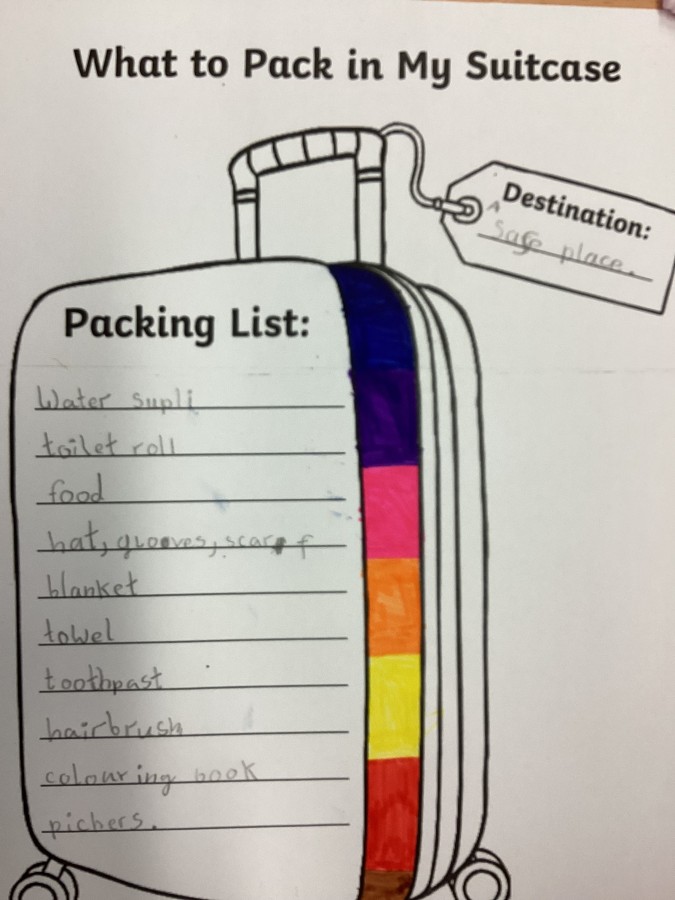 What to Pack in My Suitcase
Destination:
A
Safe place.
Packing List:
Water supli
toilet roll
food
hat, glooves, scarf
blanket
towel
toothpast
hairbrush
colouring book
pichers.